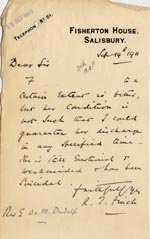 TELEPHONE No 51.
FISHERTON HOUSE,
SALISBURY.
Sep 14th 1911
Dear Sir
is to a
certain extent is better,
but her condition is
not such that I could
guarantee her discharge
in any specified time.
She is still
and has been
Suicidal.
faithfully yrs
R. T. Finch
Rev E. Du M.